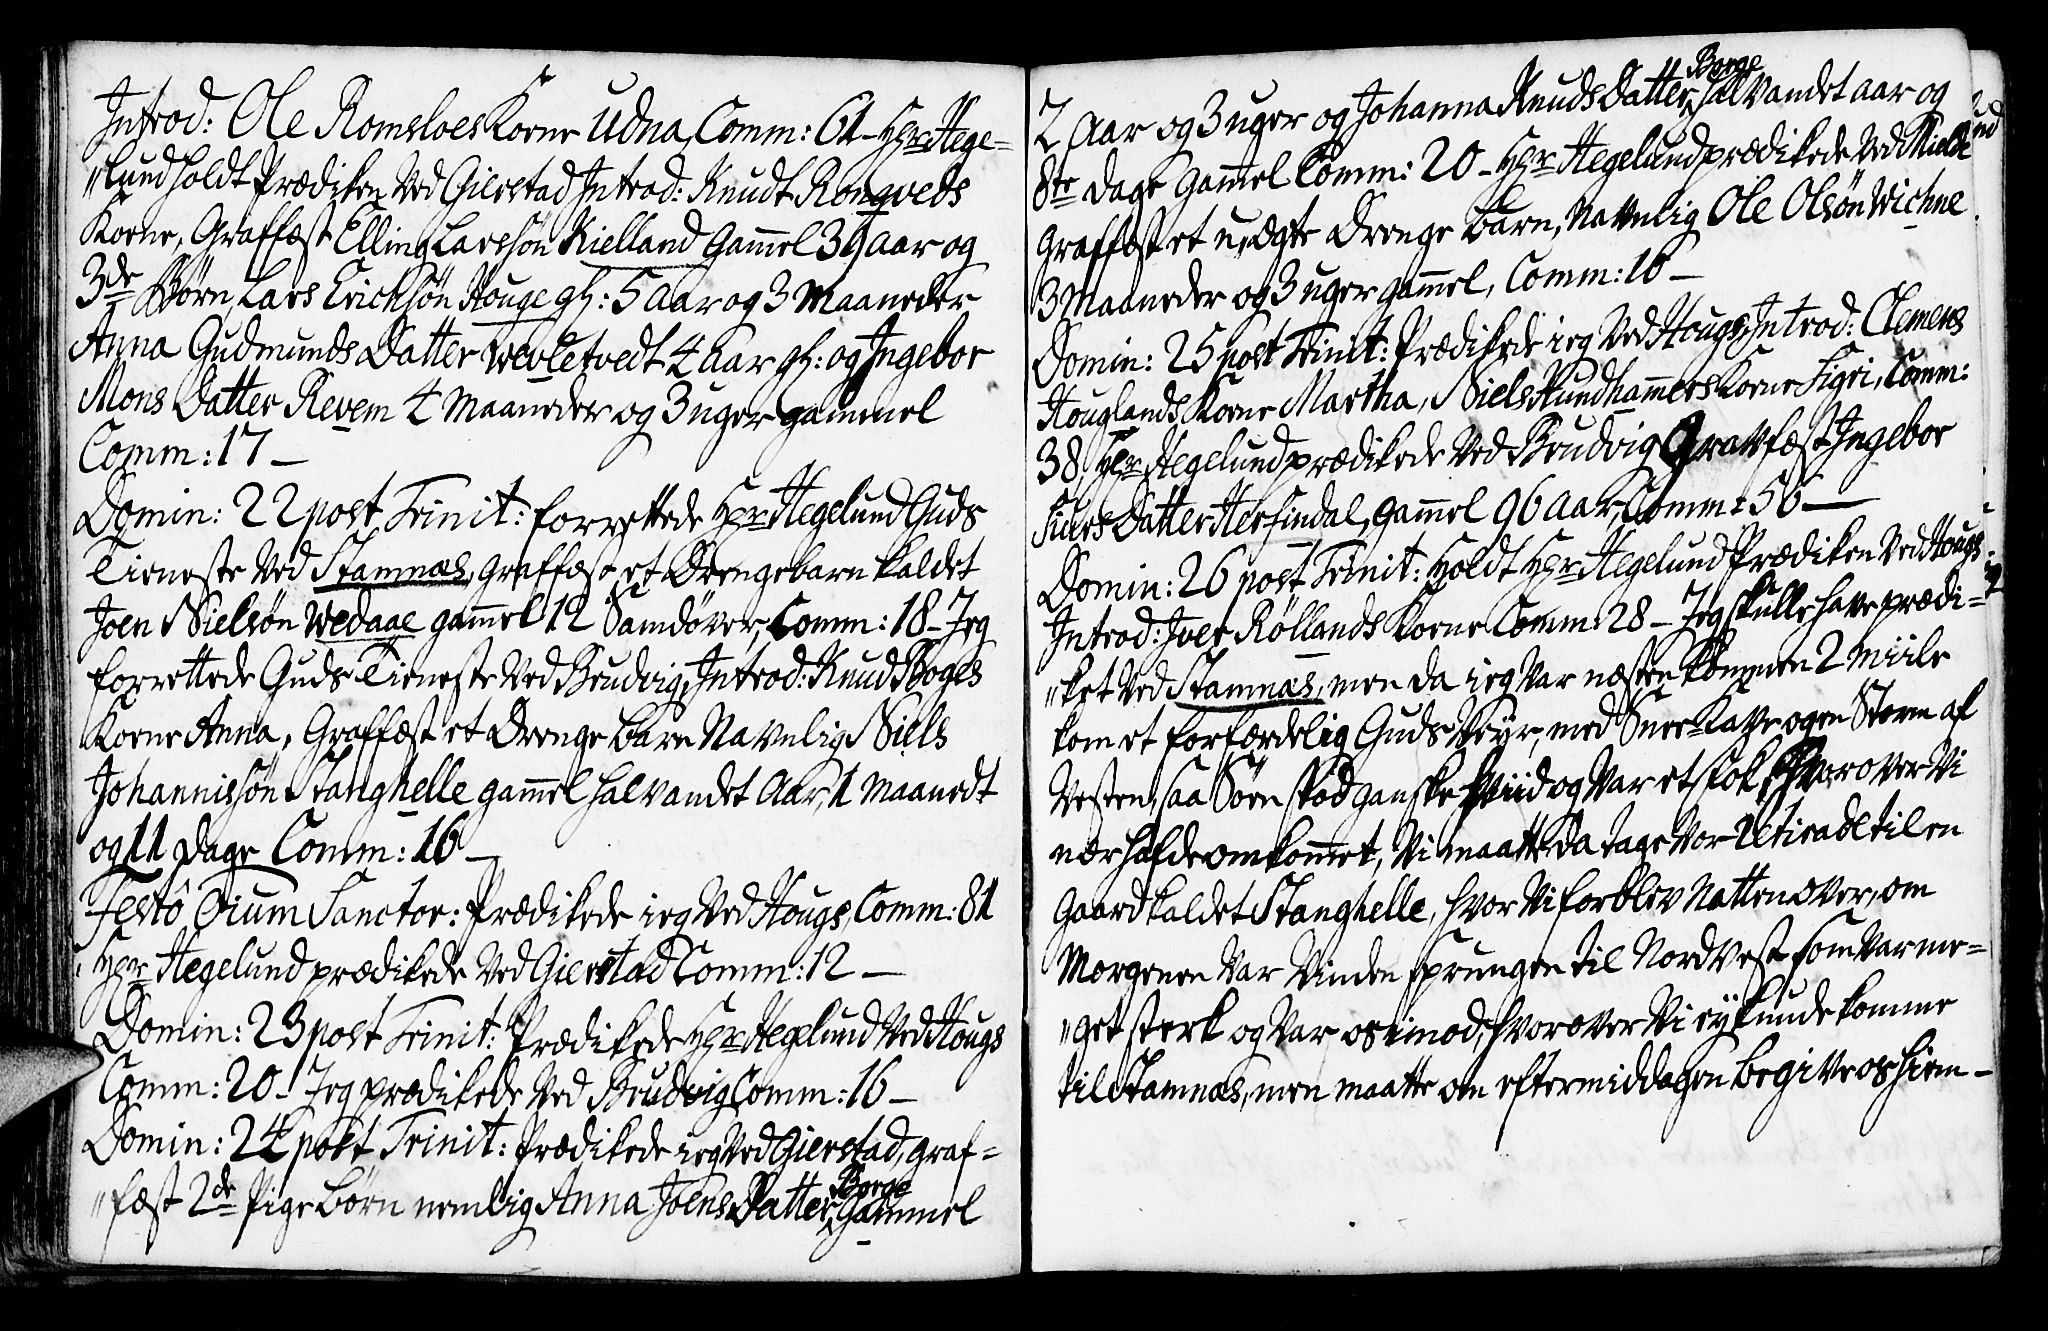 Introd: Ole Romsloes Kone Udna, Comm: 61 – Hr: Hege=
"lund holdt Prædiken Ved Gierstad Introd: Knudt Rongveds
Kone, Graffæst Elling Larssøn Kielland Gammel 39 aar og
3de Børn, Lars Ericksøn Houge gl: 5 aar og 3 Maaneder
Anna Gudmunds Datter Wevletvedt 4 aar gl: og Ingebor
Mons Datter Revem 4 Maaneder og 3 uger gammel
Comm: 17 –
Domin: 22 post Trinit: forrettede Hr: Hegelund Guds
Tieneste Ved Stamnæs, Graffæst et Drengebarn kaldet
Joen Nielsøn Wedaae gammel 12 Samdøver, Comm: 18 – Jeg
forrettede Guds Tieneste Ved Brudvig, Introd: Knud Boges
Kone Anna, Graffæst et Drenge barn Navnlig Niels
Johannissøn Stanghelle gammel halvandet Aar, 1 Maanedt
og 11 Dage Comm: 16 –
Festô Oium Sanctor: Prædikede ieg Ved Hougs, Comm: 81
Hr: Hegelund prædikede Ved Gierstad Comm: 12 –
Domin: 23 post Trinit: Prædikede Hr: Hegelund Ved Hougs
Comm: 20 – Jeg prædikede Ved Brudvig Comm: 16 –
Domin: 24 post Trinit: Prædikede ieg Ved Gierstad, graf=
"fæst 2de Pige Børn nemlig Anna Joens Datter Borge Gammel
2 Aar og 3 uger og Johanna Knuds Datter Borge halvandet aar og
8te Dage Gammel Comm: 20 – Hr: Hegelund prædikede Ved
Graffæst et u,ægte Drenge barn, Navnlig Ole Olsøn Wichne
3 Maaneder og 3 uger gammel, Comm: 16 –
Domin: 25 post Trinit: Prædikede ieg Ved Hougs, Introd: Clemens
Houglands Kone Martha, Niels Rundhammers Kone Sigri, Comm:
38, Hr: Hegelund prædikede Ved Brudvig Gravfæst Ingebor
Siurs Datter Herfindal, gammel 96 aar, Comm: 56 –
Domin: 26 post Trinit: Holdt Hr: Hegelund Prædiken Ved Hougs
Introd: Iver Røllands Kone Comm: 28 – Jeg skulle have prædi=
"ket Ved Stamnæs, men da ieg Var næsten kommen 2 Miile
kom et forfærdelig Guds Veyr, med Snee Kave og en Storm af
Vesten, saa Søen stod ganske hviid og Var et Rok, hvorover Vi
nær hafde omkommet, Vi maatte da tage Vor retirade til en
Gaard kaldet Stanghelle, hvor Vi forblev Natten over, om
Morgenen Var Vinden sprungen til Nordvest som Var me=
"get sterk og Var os imod, hvorover Vi ey kunde komme
til Stamnæs, men maatte om eftermiddagen begive os hiem –